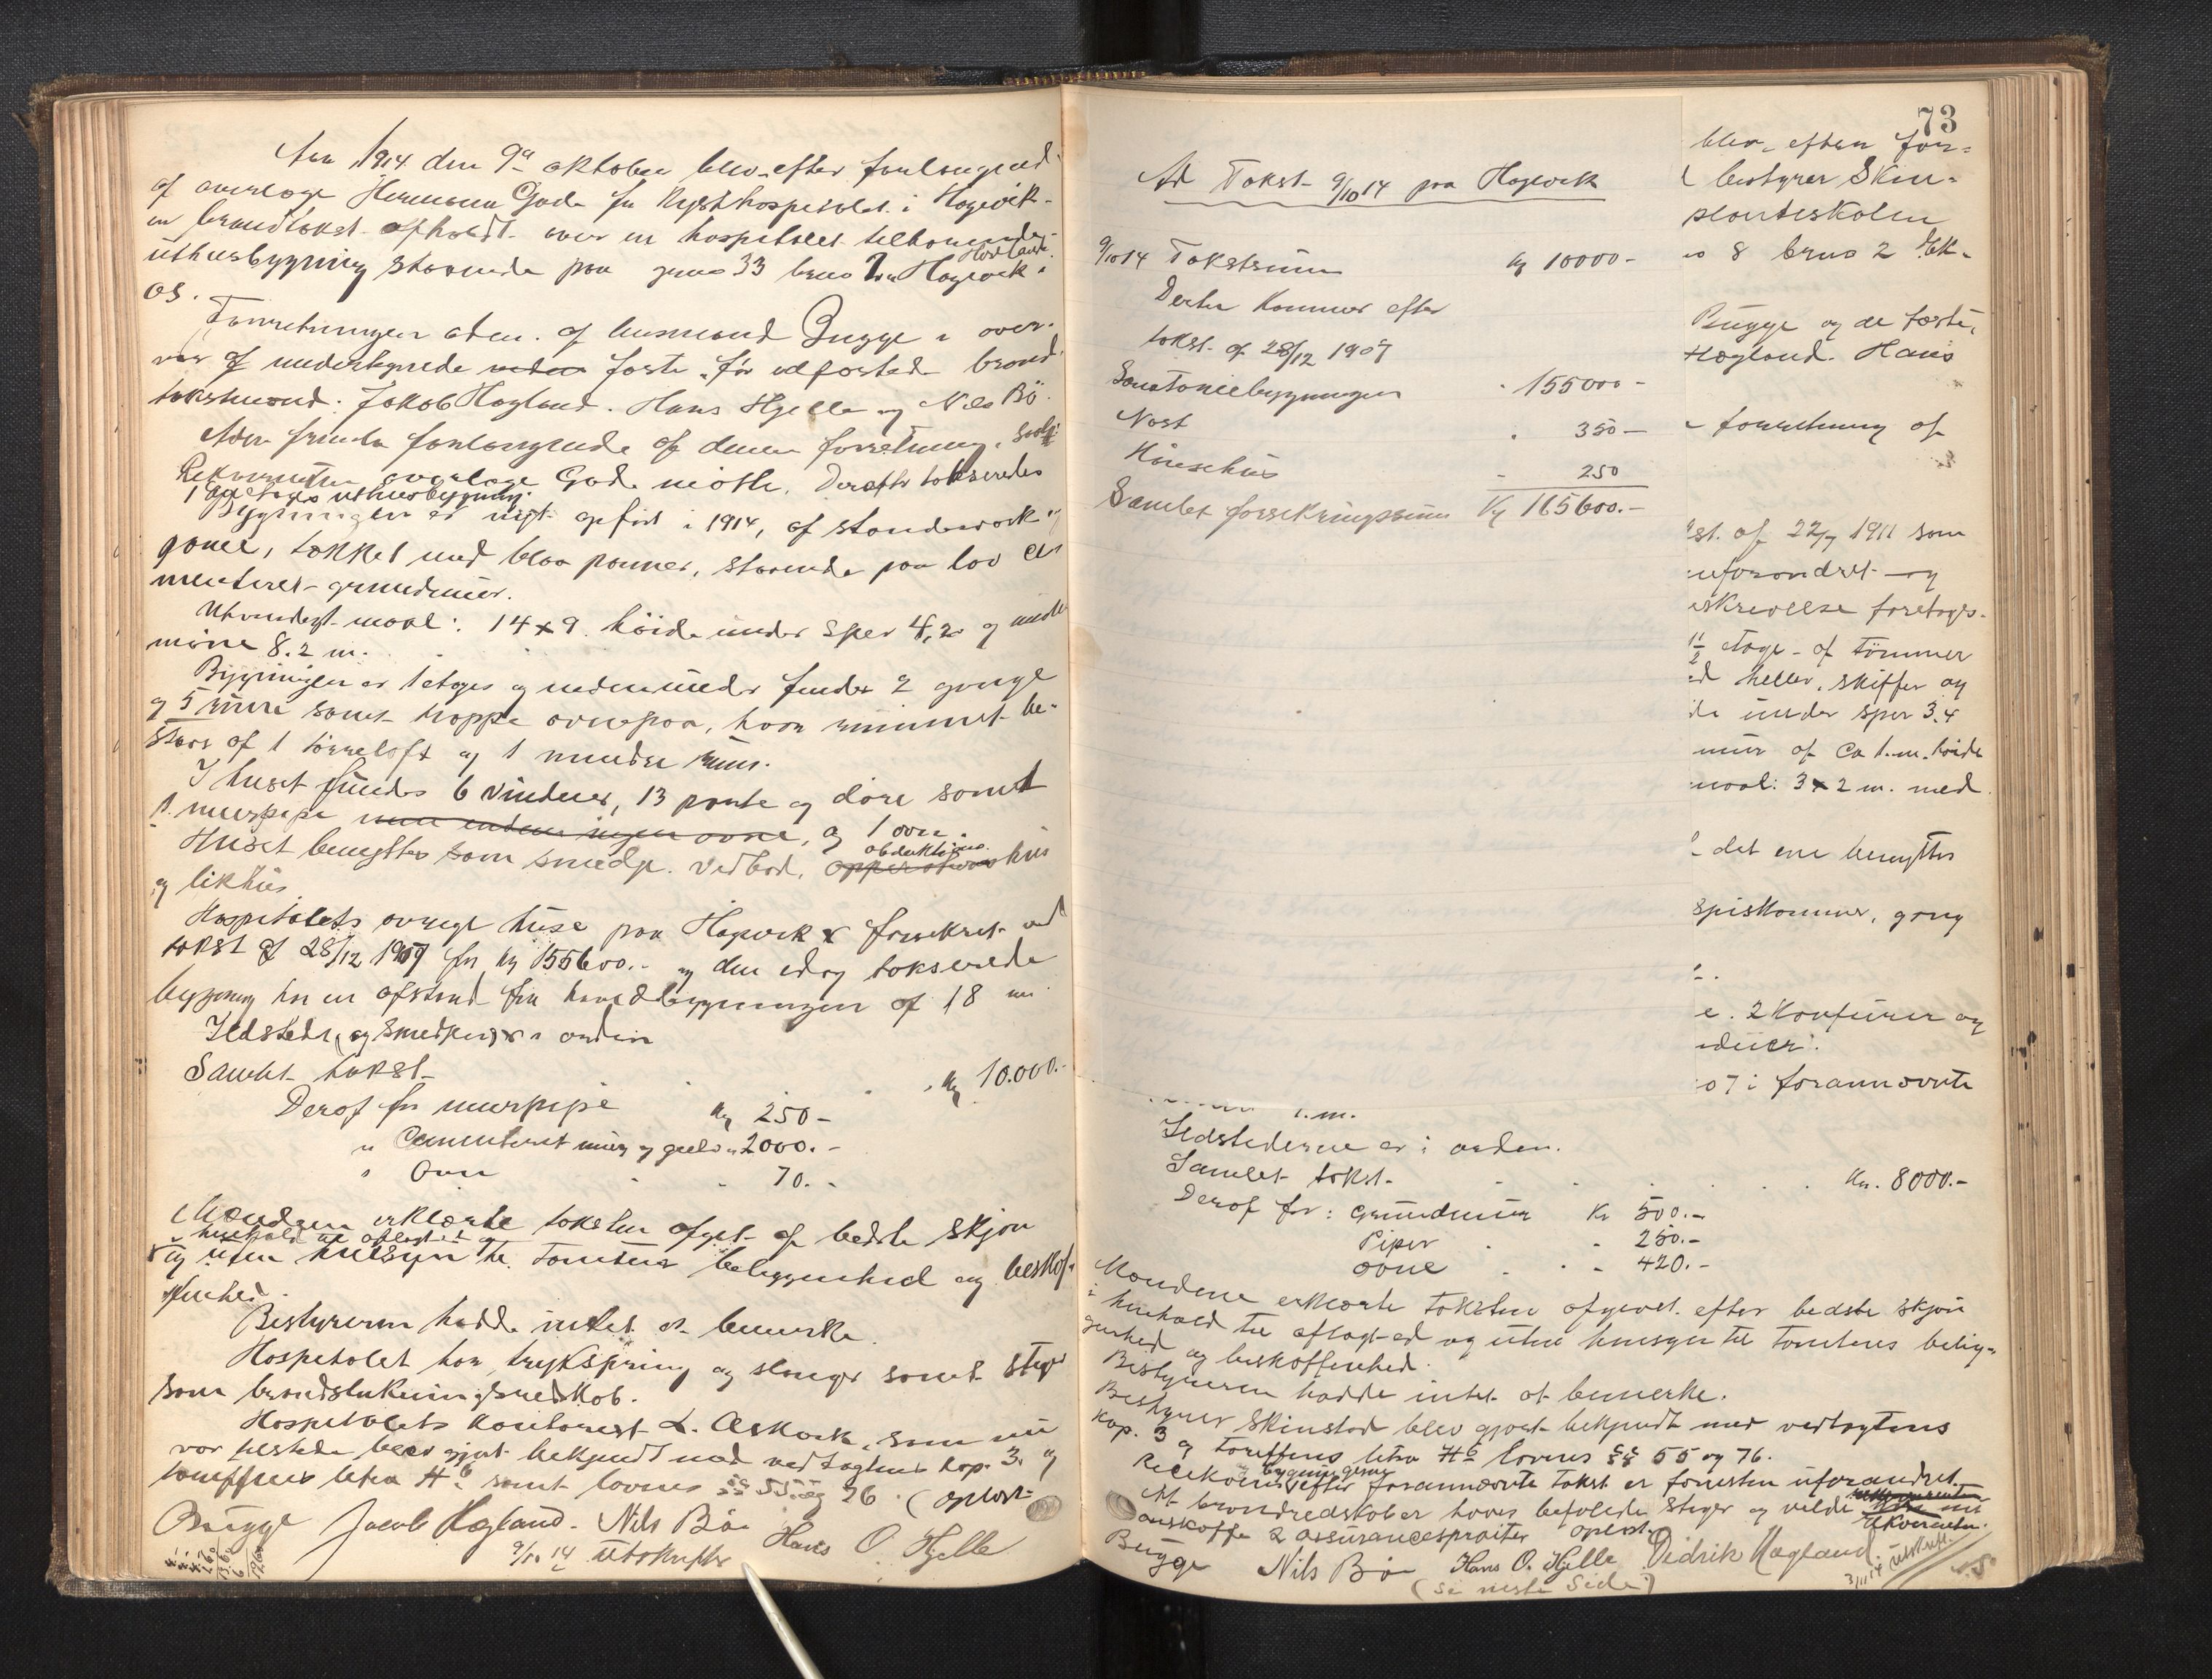 Aar 1914 den 9de oktober blev efter forlangend
af overlæge Hermann Gade for Kysthospitalet i Hagevik
en brandtakst afholdt over en hospitalet tilhørende
uthusbygning staaende paa gnr 33 brno 7 Hagevik i
Os.
Forretningen adm. af lensmand Bugge i over-
vær af undertegnede faste, før edfæstede brand-
takstmænd: Jakob Hægland. Hans Hjelle og Nils Bö.
forlangende af denne forretning
Rekvirenten overlæge Gade mötte. Derefter takseredes
1 etages uthusbygning.
Bygningen er nyt opført i 1914, af standerverk og
panel, tækket med blaa panner, staaende paa lav ce-
menteret grundmur.
Utvendigt maal: 14 x 9. höide under sper 4,20 og under
möne 8.2 m.
Bygningen er 1 etages og nedenunder findes 2 gange
og 5 rum samt trappe ovenpaa, hvor rummet be-
staar af 1 törreloft og 1 mindre rum.
I huset findes 6 vinduer, 13 porte og döre samt
1 murpipe men endnu ingen ovne, og 1 ovn.
Huset benyttes som smedje. vedbod, obduktions-
hus
og likhus
Hospitalets övrige huse paa Hagevik er forsikret ved
takst af 28/12 1907 for kr 155600.- og den idag takserede
bygning har en afstand fra hovedbygningen af 18 m.
Ildsteder og smedpipe er i orden
Samlet takst kr 10.000.-
Deraf for murpipe kr 250-
" Cementeret mur og gulv " 2000.-
" Ovn " 70.-
Mændene erklærte taksten afgit af bedste skjön
i henhold til aflagt ed og
og uten hensyn til tomtens beliggenhed og beskaf-
fenhed.
Bestyreren hadde intet at bemerke.
Hospitalet har trykspring og slanger samt stige
som brandslukningsredskab.
Hospitalets kontorist L. Askvik, som nu
var tilstede blev gjort bekjendt med vedtægtens kap. 3. og
tariffens litra H6 samt lovens §§ 55 og 76. (Oplæst
Bugge Jacob Hægland. Nils Bö Hans O. Hjelle
9/10 14 Utskrift

73
Ad Takst 9/10 14 paa Hagevik
9/10 14 Takstsum kr 10000-
Dertil kommer efter
takst af 28/12 1907
Sanatoriebygningen " 155000-
Nøst " 350-
Hönsehus " 250
Samlet forsikringssum Kr 165600.-
blev efter for-
bestyrer Skin-
planteskolen
8 brno 2
Bugge og de faste,
Hægland. Hans
forretning af
af 22/7 1911 som
uforandret og
beskrivelse foretages.
1½ etage af tömmer
heller, skiffer og
under sper 3.4
mur af ca 1. m. höide
maal: 3 x 2 m. med
det ene benyttes
spiskammer, gang
2 komfurer og
i forannævnte
1. m.
Ildstederne er i orden.
Samlet takst Kr. 8000.-
Deraf for: Grundmur Kr 500.-
Piper " 250.-
ovne " 420.-
Mændene erklærte taksten afgivet efter bedste skjön
i henhold til aflagt ed og uten hensyn til tomtens belig-
genhed og beskaffenhed.
Bestyreren hadde intet at bemerke.
Bestyrer Skinstad blev gjort bekjendt med vedtægtens
kap. 3 og tariffens litra H6 lovens §§ 55 og 76.
bygningerne
efter forannævnte takst er forresten uforandret
At brandredskaber haves befalede stiger og vilde rekvirenten
anskaffe 2 assurancespröiter oplæst.
Bugge Nils Bö Hans O. Hjelle Didrik Hægland.
3/11 14 utskrift.
(se neste side)